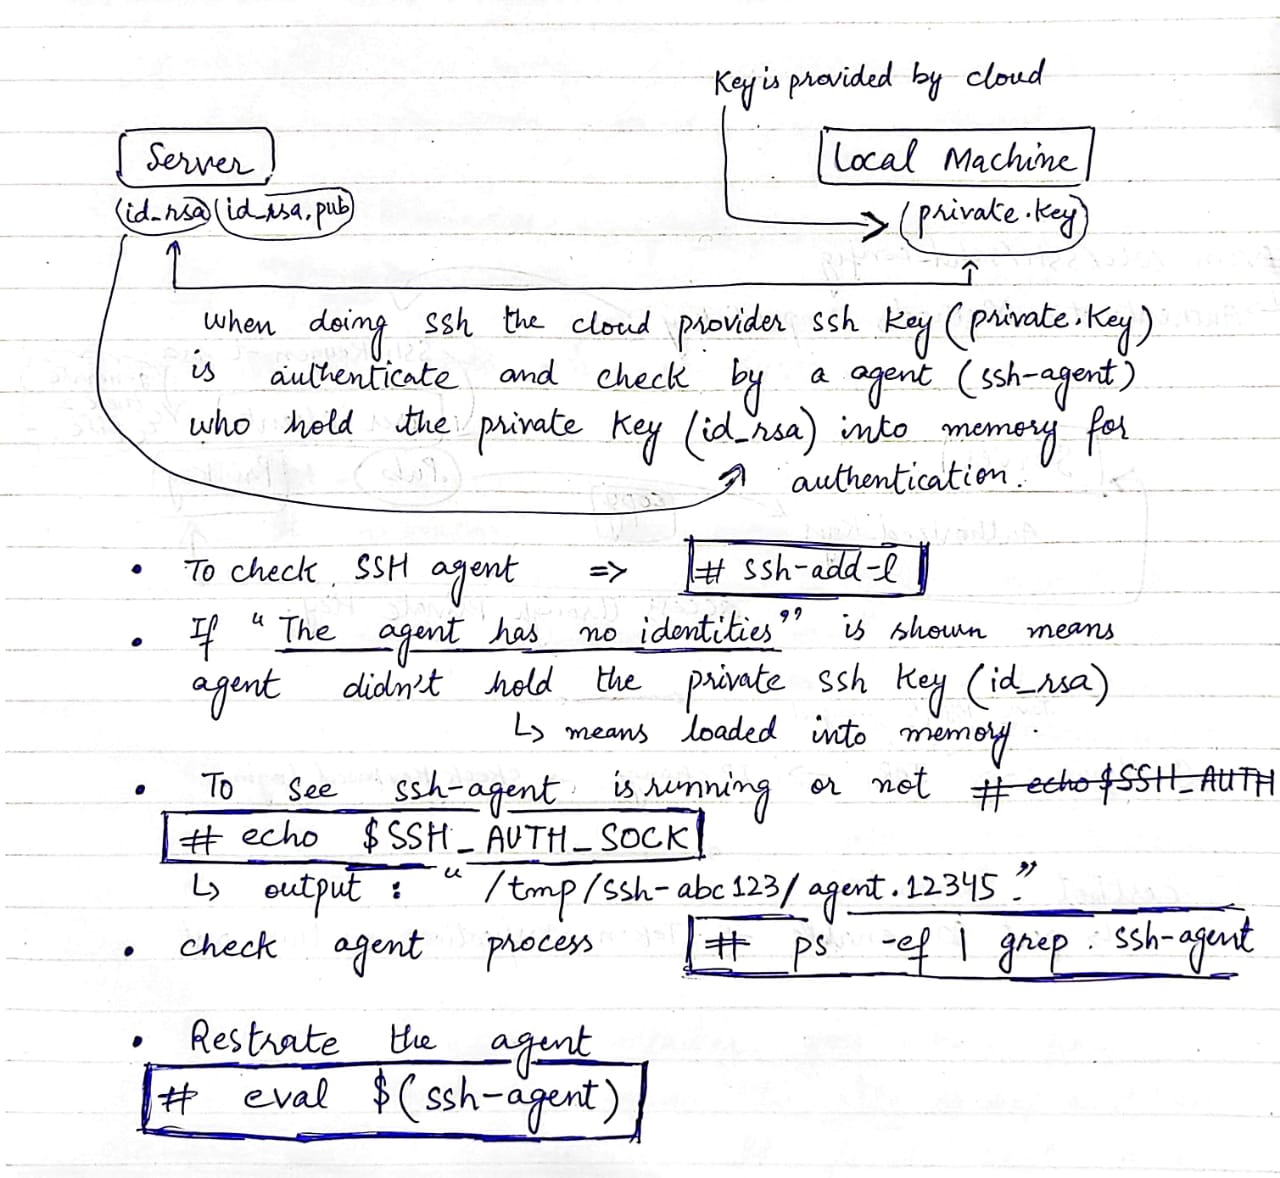 Key is provided by cloud
Server
Local Machine
(id_rsa) (id_rsa.pub)
(private.key)
when doing ssh the cloud provider ssh key (private.key)
is authenticate and check by a agent (ssh-agent)
who hold the private key (id_rsa) into memory for
authentication.
• To check SSH agent => # ssh-add-l
• If "The agent has no identities" is shown means
agent didn't hold the private ssh key (id_rsa)
↳ means loaded into memory.
• To see ssh-agent is running or not # echo $SSH_AUTH
# echo $SSH_AUTH_SOCK
↳ output : "/tmp/ssh-abc123/agent.12345."
• check agent process # ps -ef | grep . ssh-agent
• Restrate the agent
# eval $(ssh-agent)